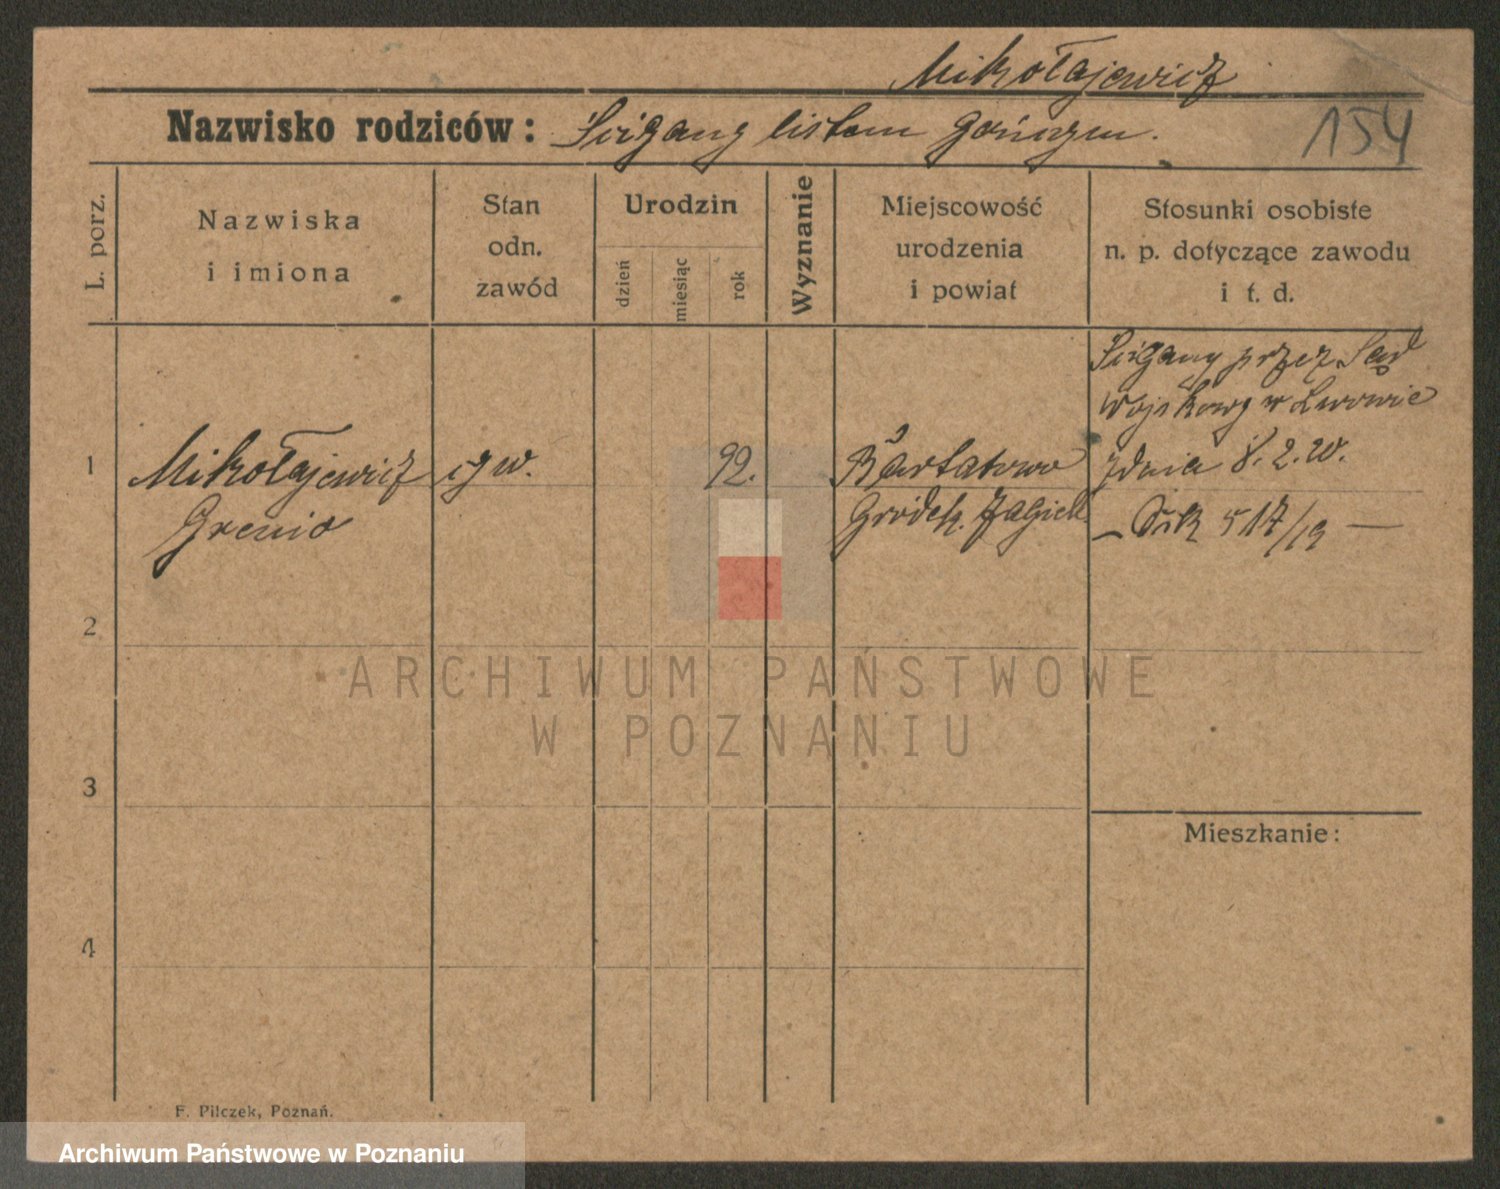 Mikołajewicz
Nazwisko rodziców: Ścigany listem gończym.
154
L. porz.
Nazwiska
i imiona
Stan
odn.
zawód
Urodzin
dzień
miesiąc
rok
Wyznanie
Miejscowość
urodzenia
i powiat
Stosunki osobiste
n. p. dotyczące zawodu
i t. d.
Ścigany przez Sąd
Wojskowy w Lwowie
1 Mikołajewicz 92. Bartatowo z dnia 8. 2. 20.
Gródek. Jagiell. 517/19 —
2
3
4
Mieszkanie:
F. Pilczek, Poznań.
ARCHIWUM PAŃSTWOWE
W POZNANIU
Archiwum Państwowe w Poznaniu